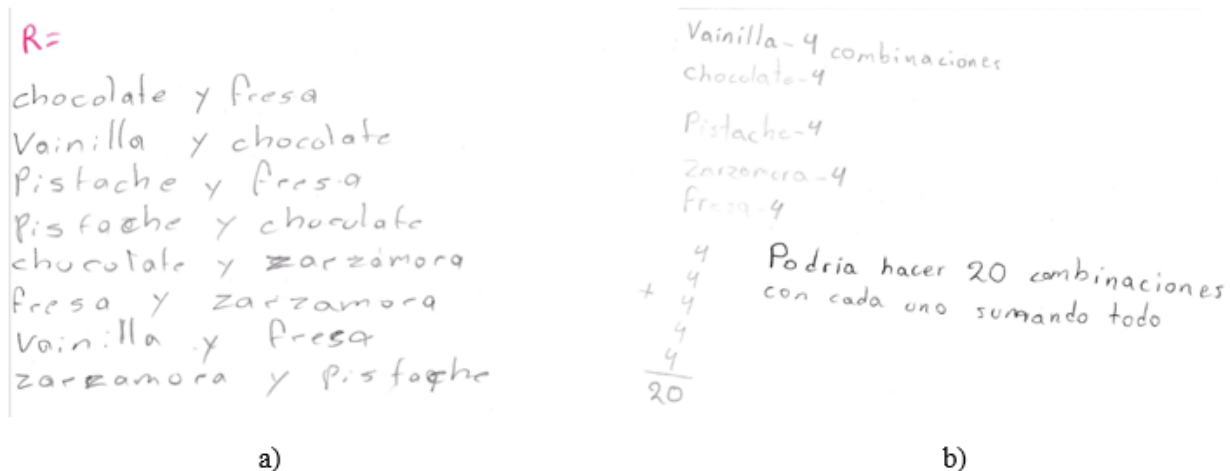 R=
chocolate y fresa
Vainilla y chocolate
Pistache y fresa
Pistache y choculate
chucolate y zarzamora
fresa y zarzamora
Vainilla y fresa
zarzamora y Pistache
a)
Vainilla-4 combinaciones
chocolate-4
Pistache-4
Zarzamora-4
fresa-4
4
4
+ 4
4
4
20
Podria hacer 20 combinaciones
con cada uno sumando todo
b)